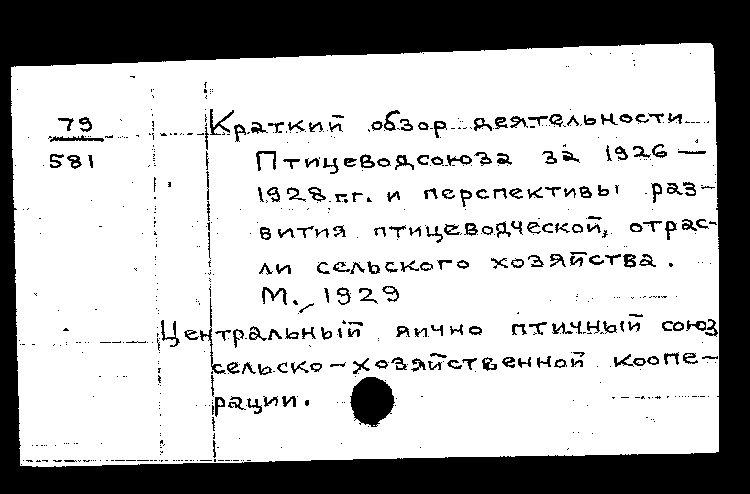 79
581
Краткий обзор деятельности
Птицеводсоюза за 1926 —
1928 г.г. и перспективы раз-
вития птицеводческой, отрас-
ли сельского хозяйства.
М., 1929
Центральный яично птичный союз
сельско-хозяйственной коопе-
рации.